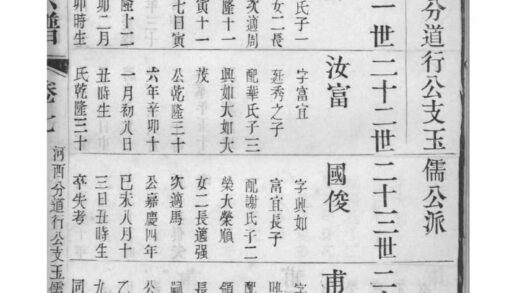 分道行公支玉儒公派
一世
二十二世
二十三世
氏子一
女二長
次適周
隆十一
寅十一
七日寅
隆十二
卯二月
卯時生
汝富
字富宜
廷秀之子
配華氏子三
興如大如大
茂
公乾隆三十
六年辛卯十
一月初八日
丑時生
氏乾隆三十
國俊
字興如
富宜長子
配謝氏子二
榮大榮順
女二長適強
次適馬
公嘉慶四年
己未八月十
三日丑時生
卒失考
甫
字
配
長
公
乙
九
同
譜
卷七
河西分道行公支玉儒